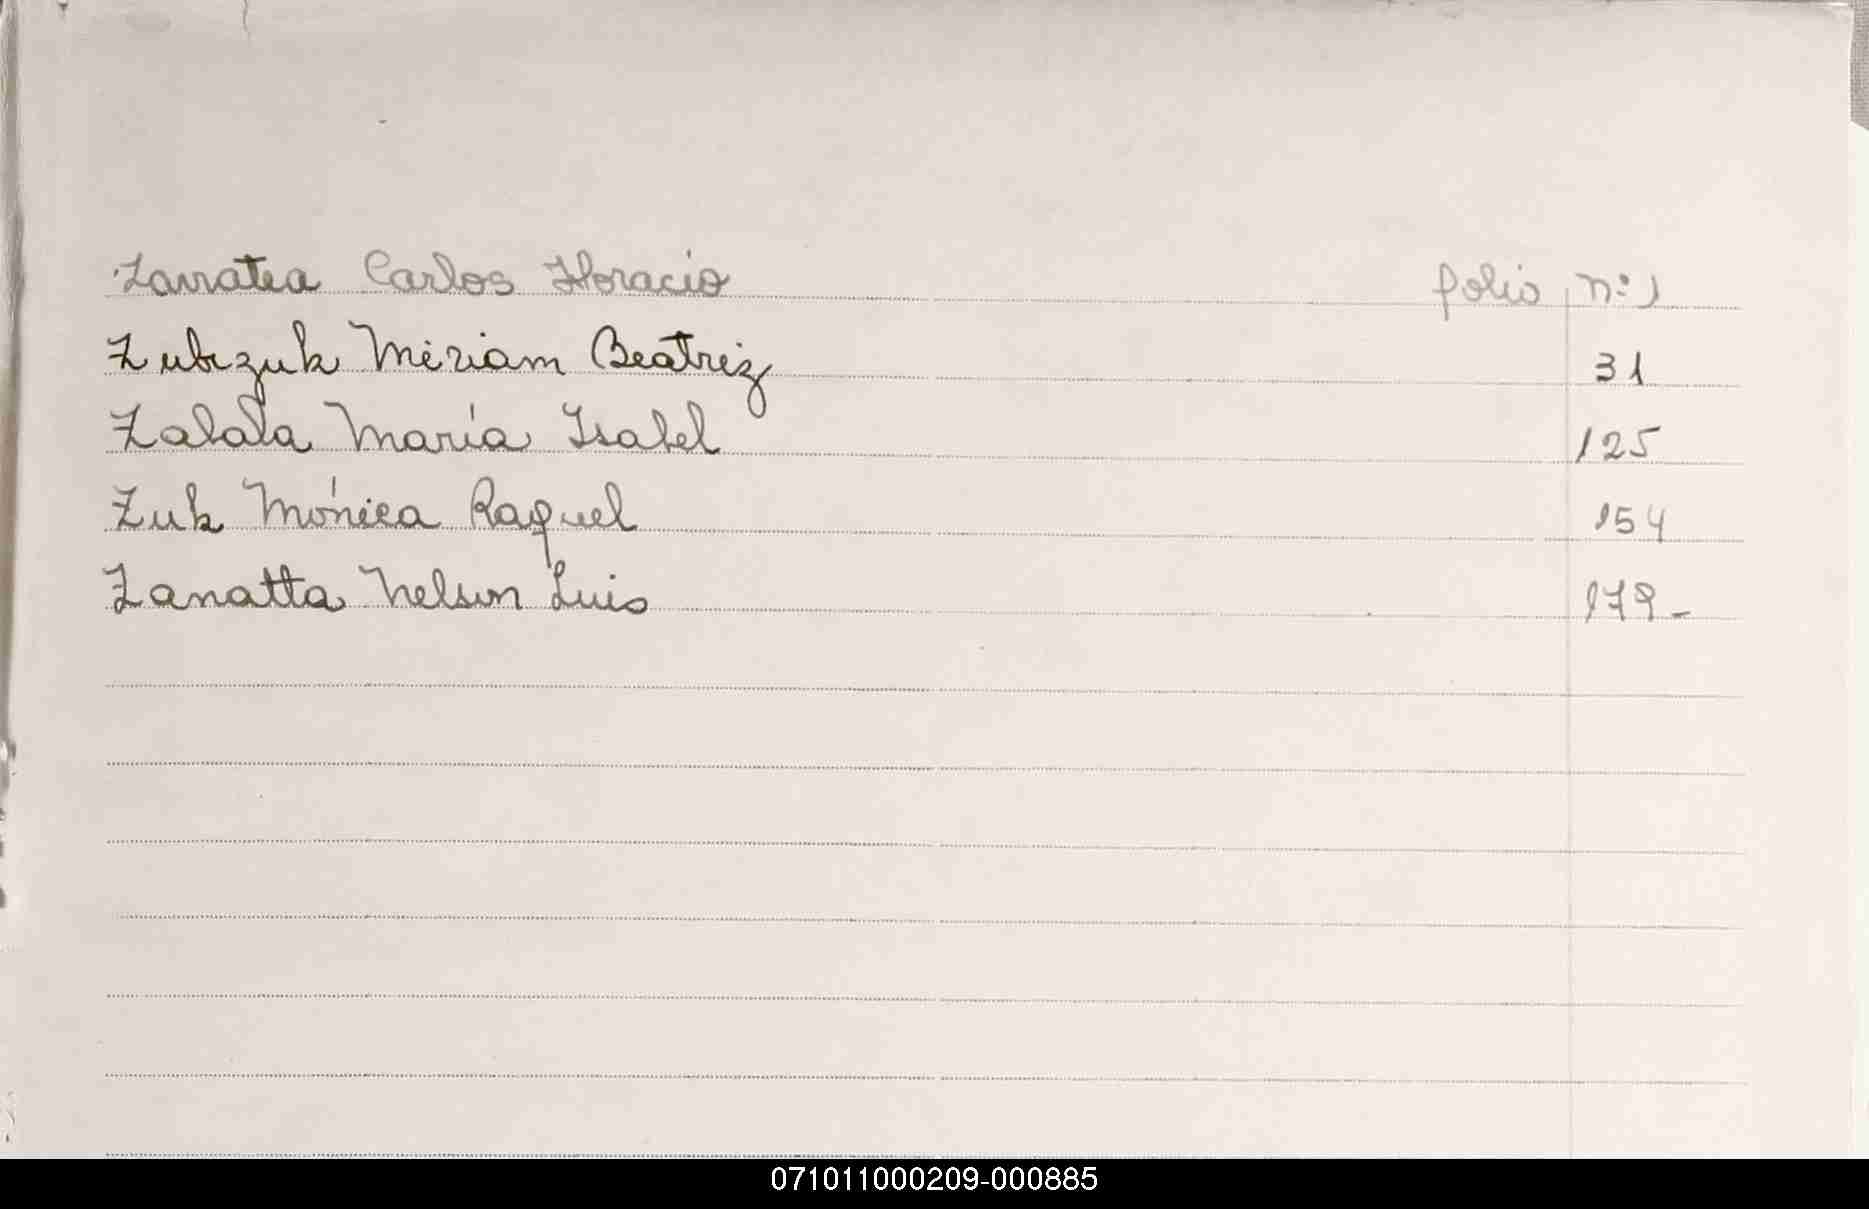 Zarratea Carlos Horacio folio nº 1
Zubczuk Miriam Beatriz 31
Zalala María Isabel 125
Zuk Mónica Raquel 154
Zanatta Nelson Luis 179-
071011000209-000885